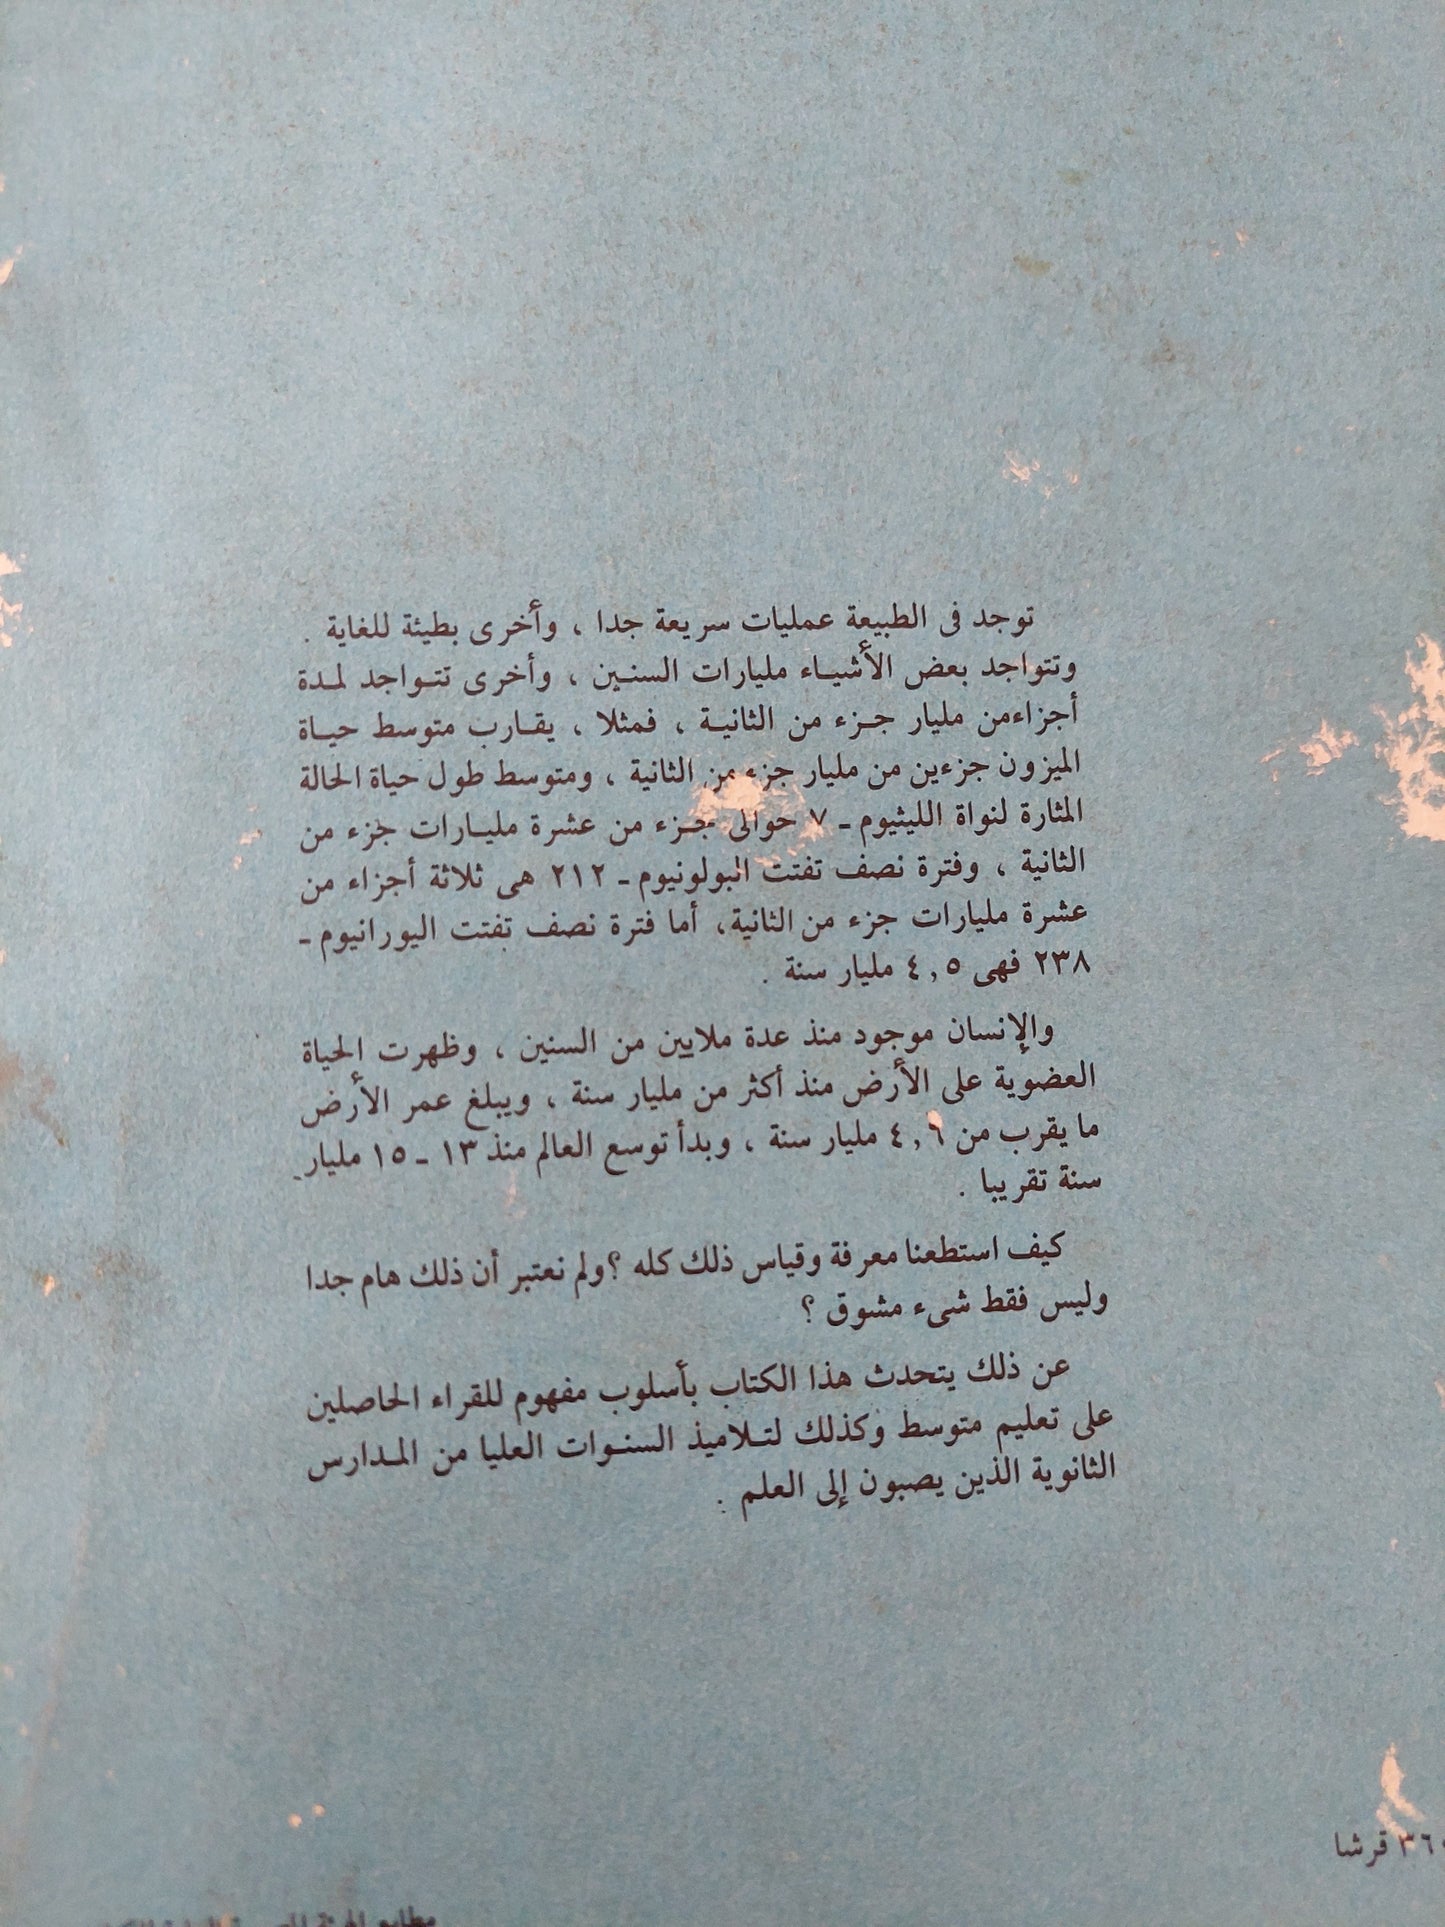 توجد فى الطبيعة عمليات سريعة جدا ، وأخرى بطيئة للغاية .
وتتواجد بعض الأشيـاء مليارات السنـين ، وأخرى تتـواجد لمـدة
أجزاءمن مليار جـزء من الثانيـة ، فمثلا ، يقـارب متوسط حيـاة
الميزون جزءين من مليار جزء من الثانية ، ومتوسط طول حياة الحالة
المثارة لنواة الليثيوم ـ ٧ حوالى جـزء من عشرة مليـارات جزء من
الثانية ، وفترة نصف تفتت البولونيوم ـ ٢١٢ هى ثلاثة أجزاء من
عشرة مليارات جزء من الثانية، أما فترة نصف تفتت اليورانيوم ـ
٢٣٨ فهى ٤,٥ مليار سنة .
والإنسان موجود منذ عدة ملايين من السنين ، وظهرت الحياة
العضوية على الأرض منذ أكثر من مليار سنة ، ويبلغ عمر الأرض
ما يقرب من ٤,٦ مليار سنة ، وبدأ توسع العالم منذ ١٣ ـ ١٥ مليار
سنة تقريبا .
كيف استطعنا معرفة وقياس ذلك كله ؟ ولم نعتبر أن ذلك هام جدا
وليس فقط شىء مشوق ؟
عن ذلك يتحدث هذا الكتاب بأسلوب مفهوم للقراء الحاصلين
على تعليم متوسط وكذلك لتـلاميذ السنـوات العليا من المـدارس
الثانوية الذين يصبون إلى العلم .
قرشا
مطابع